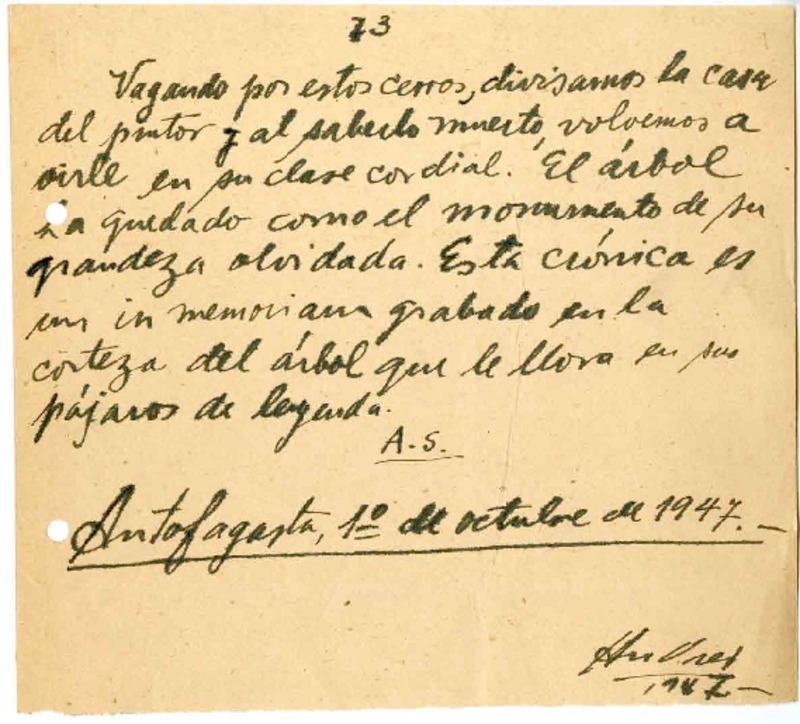 73
Vagando por estos cerros, divisamos la casa
del pintor y al saberlo muerto, volvemos a
oirle en su clase cordial. El árbol
ha quedado como el monumento de su
grandeza olvidada. Esta crónica es
un in memoriam grabado en la
corteza del árbol que le llora en sus
pájaros de leyenda.
A.S.
Antofagasta, 1º de octubre de 1947.—
1947.—